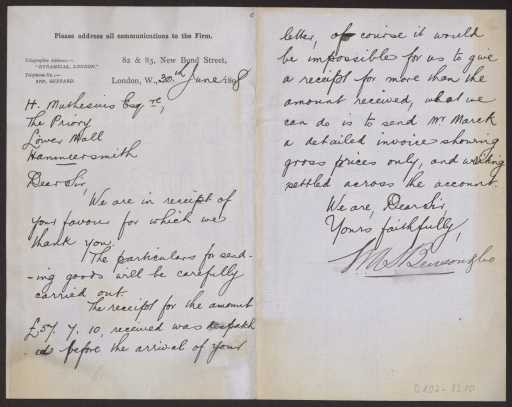 Please address all communications to the Firm.
Telegraphic Address :—
"DYNAMICAL, LONDON."
Telephone No. :—
GERRARD.
82 & 83, New Bond Street,
London, W., 30th June 1898
H. Muthesius Esqre,
The Priory
Lower Mall
Hammersmith
Dear Sir,
We are in receipt of
your favour for which we
thank you.
The particulars for send-
-ing goods will be carefully
carried out.
The receipt for the amount
£57. 7. 10, received was despatch
ed before the arrival of your
letter, of course it would
be impossible for us to give
a receipt for more than the
amount received, what we
can do is to send Mr March
a detailed invoice showing
gross prices only, and writing
settled across the account.
We are, Dear Sir,
Yours faithfully,
W.A.S. Benson & Co